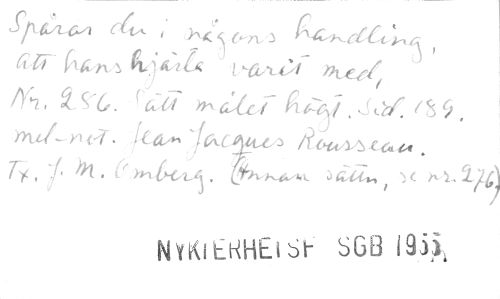 Spårar du i någons handling,
att hans hjärta varit med,
Nr. 286. Sätt målet högt. Sid. 189.
mel-not. Jean Jacques Rousseau.
Tx. J. M. Omberg. (Annan sättn, se nr. 276)
NYKTERHETSF SGB 1955